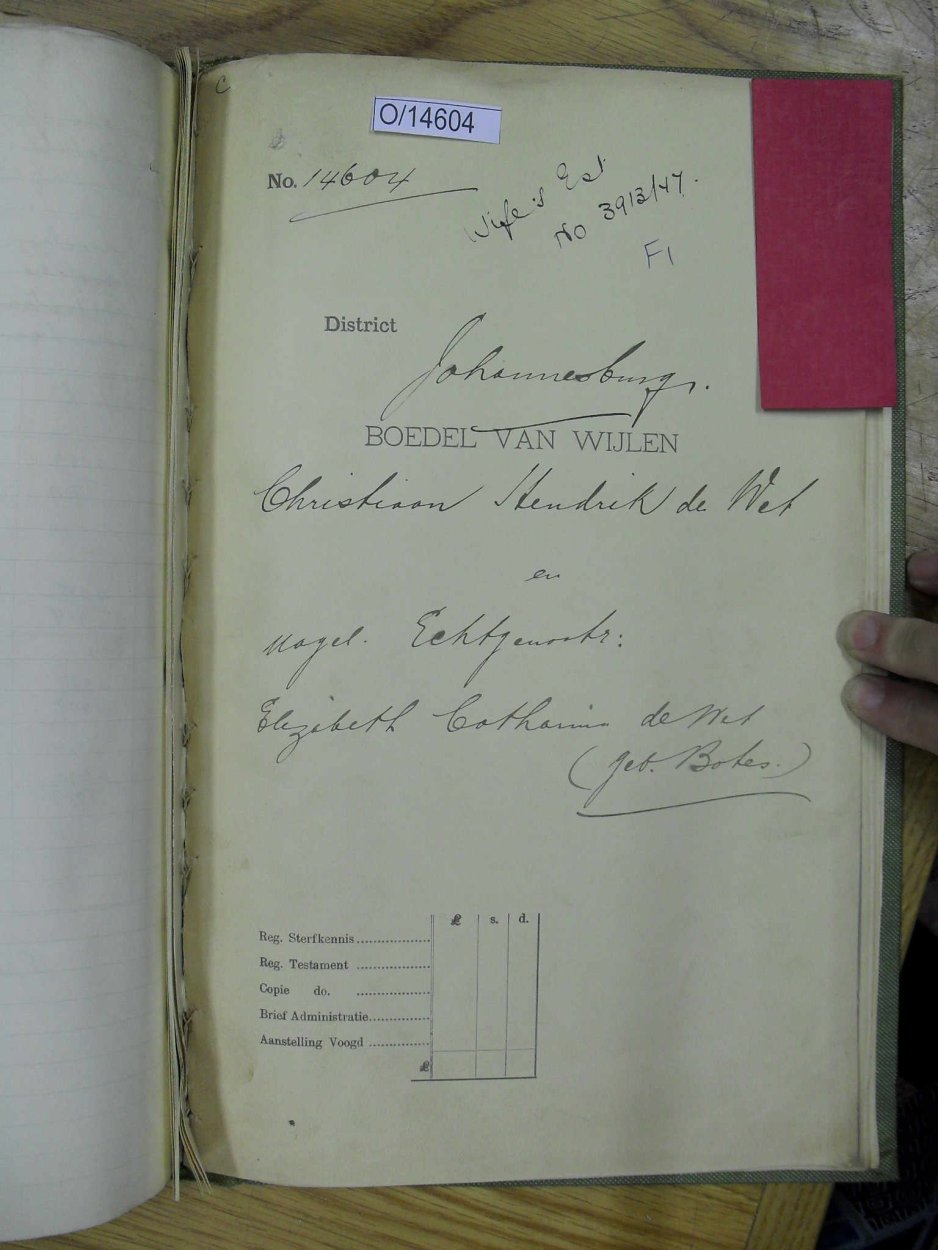 C
O/14604
No. 14604
Wife's Est
No 3913/47.
F1
District
Johannesburg.
BOEDEL VAN WIJLEN
Christiaan Hendrik de Wet
en
nagel. Echtgenoote:
Elizabeth Catharina de Wet
(geb. Botes.)
£ s. d.
Reg. Sterfkennis
Reg. Testament
Copie do.
Brief Administratie
Aanstelling Voogd
£